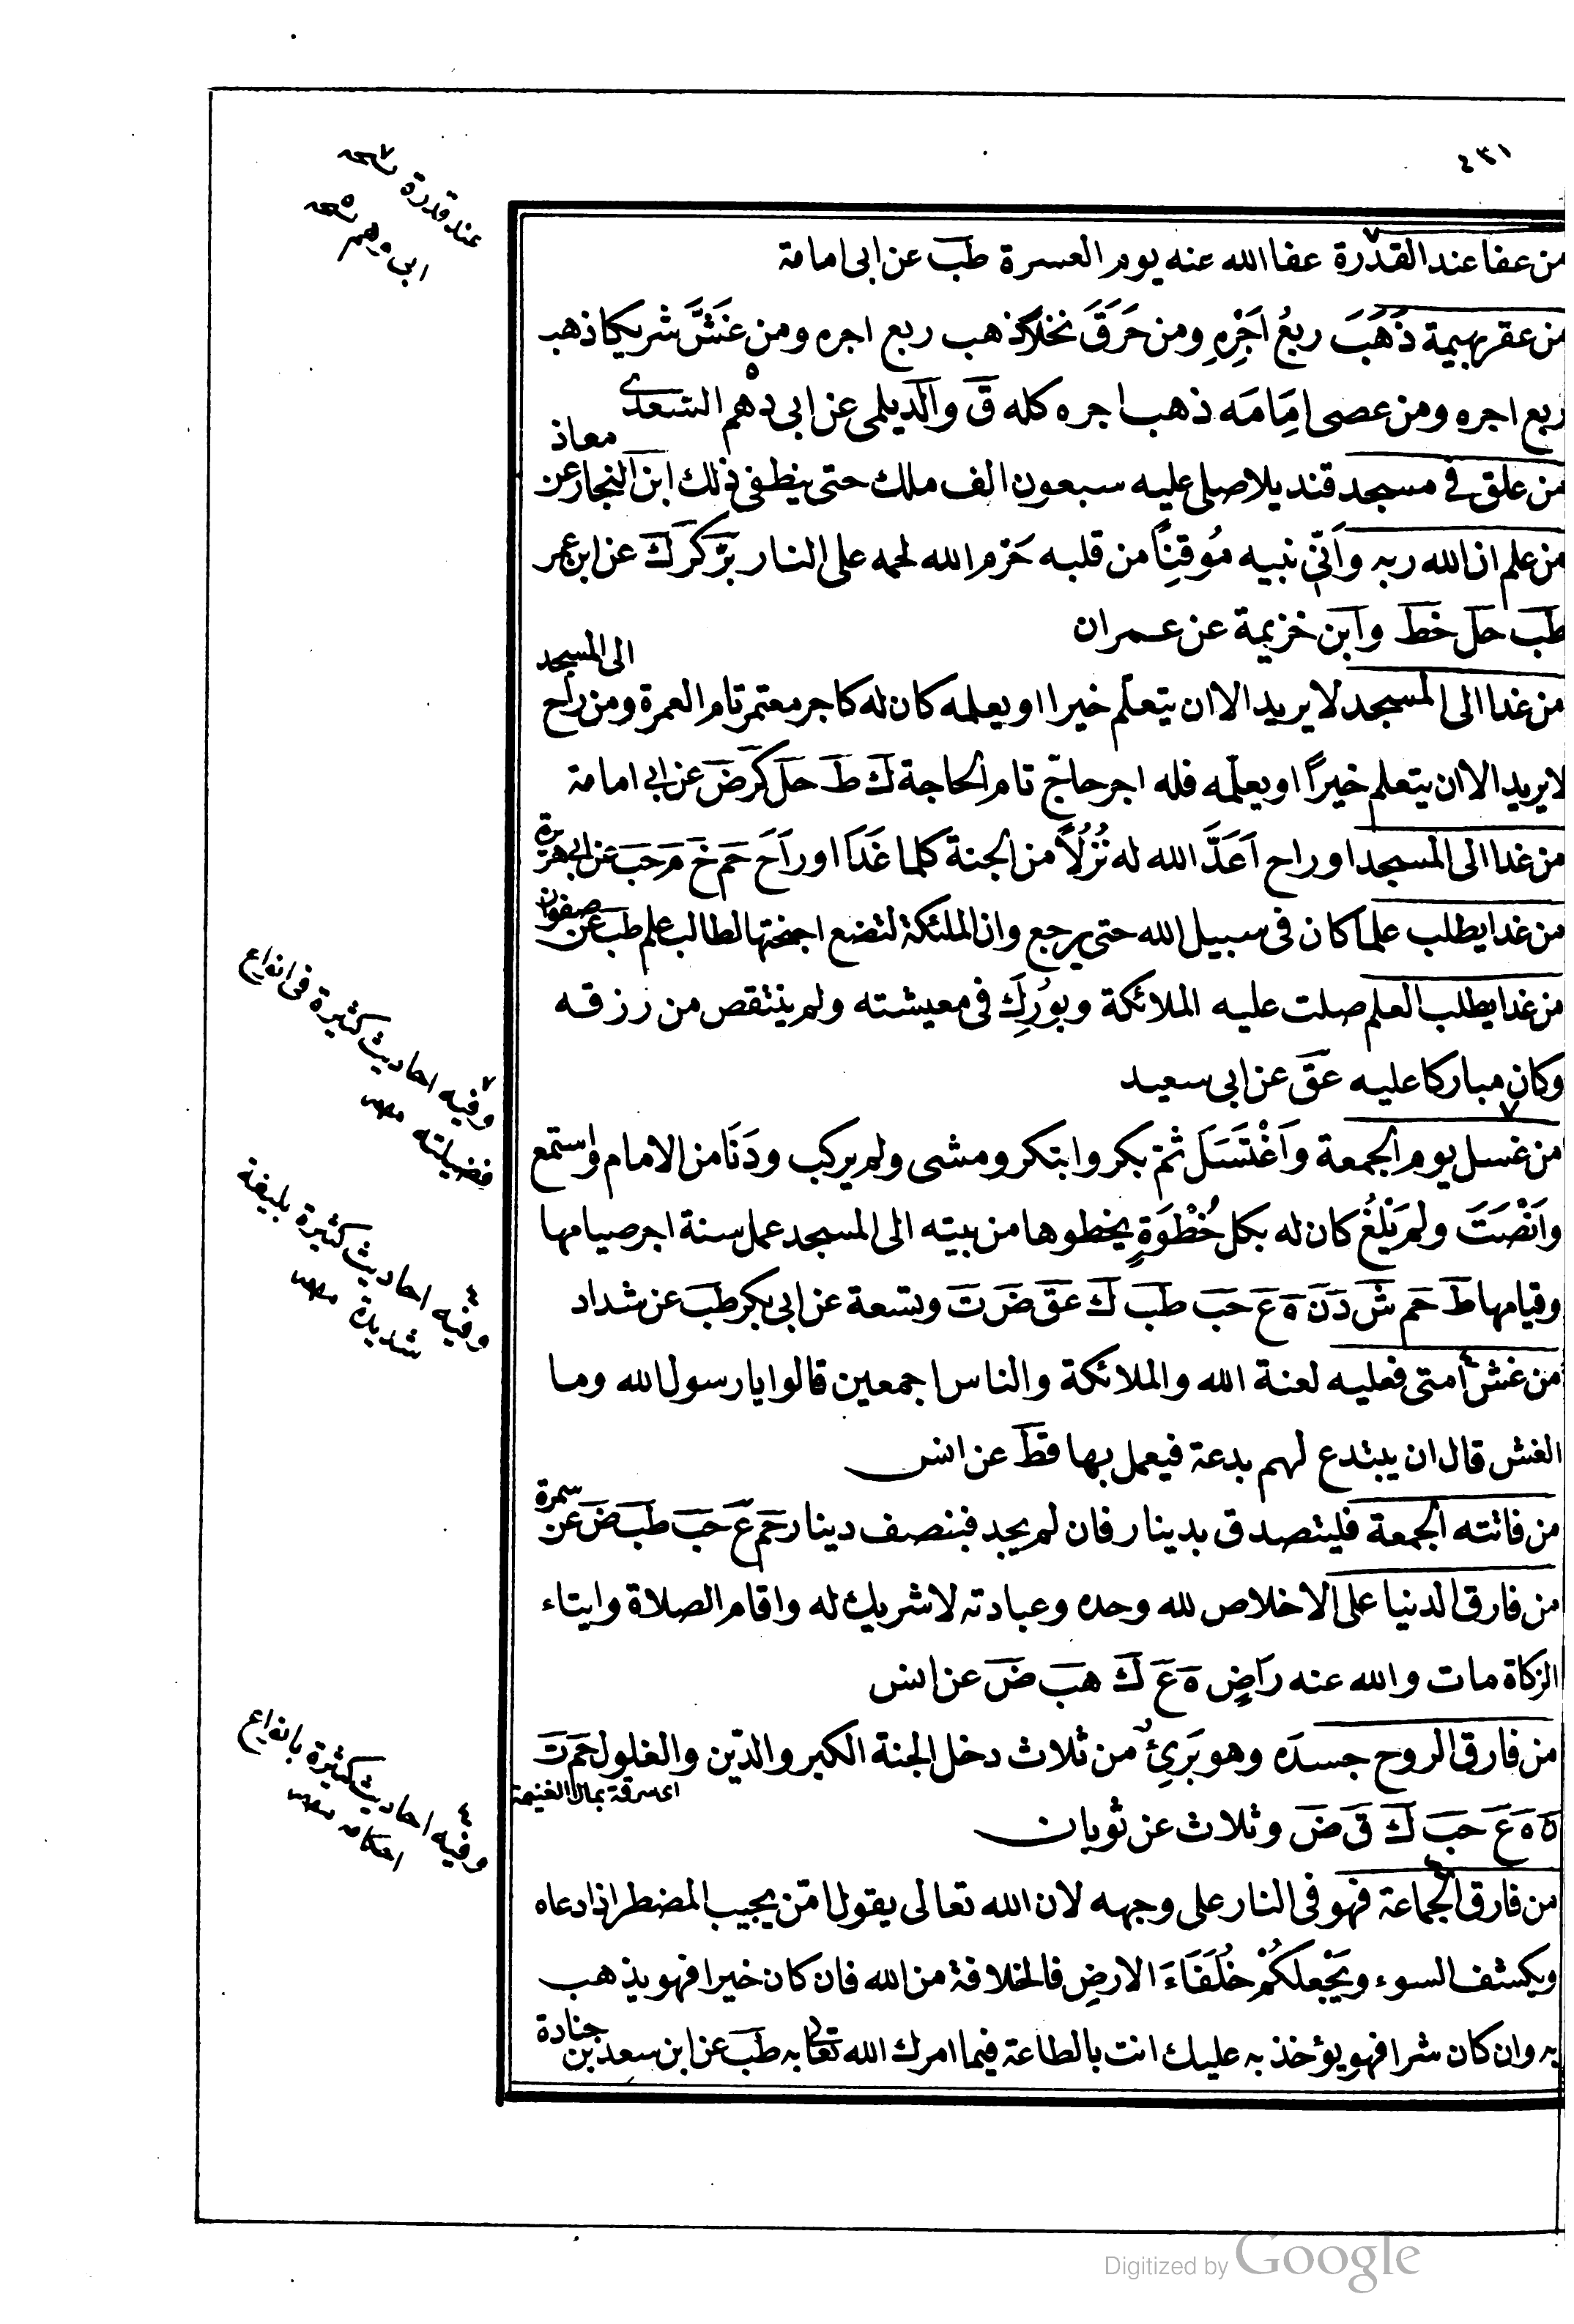 ٤٣١
من عفا عند القدرة عفا الله عنه يوم العسرة طب عن ابى امامة
من عقر بهيمة ذَهَبَ ربعُ اَجْرِهِ ومن حَرَقَ نخلا ذهب ربع اجره ومن غَشَّ شريكا ذهب
ربع اجره ومن عصى اِمَامَه ذهب اجره كله ق والديلمى عن ابى دهم السعدى
من علق فى مسجد قنديلا صلى عليه سبعون الف ملك حتى ينطفى ذلك ابن النجار عن معاذ
من علم ان الله ربه وَاَنّى نبيه مُوقِنًا من قلبه حَرّم الله لحمه على النار بز كر ك عن ابن عمر
طب حل خط وابن خزيمة عن عمران
من غدا الى المسجد لا يريد الا ان يتعلّم خيرا او يعلمه كان له كاجر معتمر تام العمرة ومن راح الى المسجد
لا يريد الا ان يتعلم خيرًا او يعلّمه فله اجر حاجّ تام الحاجة ك ط حل كر ض عن ابى امامة
من غدا الى المسجد او راح اَعَدَّ الله له نُزُلًا من الجنة كلما غَدَا او رَاحَ حم خ م حب عن ابى هريرة
من غدا يطلب علما كان فى سبيل الله حتى يرجع وان الملئكة لتضع اجنحتها لطالب علم طب عن صفوان
من غدا يطلب العلم صلت عليه الملائكة وبُورِكَ فى معيشته ولم ينتقص من رزقه
وكان مباركا عليه عق عن ابى سعيد
من غسل يوم الجمعة وَاغْتَسَلَ ثمّ بكر وابتكر ومشى ولم يركب ودَنَا من الامام واستمع
وَاَنْصَتَ ولم يَلْغُ كان له بكل خُطْوَةٍ يخطوها من بيته الى المسجد عمل سنة اجر صيامها
وقيامها ط حم ش د ن ه ع حب طب ك عق ض ت وتسعة عن ابى بكر طب عن شداد
من غش امتى فعليه لعنة الله والملائكة والناس اجمعين قالوا يا رسول الله وما
الغش قال ان يبتدع لهم بدعة فيعمل بها قط عن انس
من فاتته الجمعة فليتصدق بدينار فان لم يجد فبنصف دينار حم ع حب طب ض عن سمرة
من فارق الدنيا على الاخلاص لله وحده وعبادته لا شريك له واقام الصلاة وايتاء
الزكاة مات والله عنه راضٍ ه ع ك هب ض عن انس
من فارق الروح جسدَه وهو بَرِئٌ من ثلاث دخل الجنة الكبر والدّين والغلول حم ت
اى سرقة بمال الغنيمة
ه ه ع حب ك ق ض وثلاث عن ثوبان
من فارق الجماعة فهو فى النار على وجهه لان الله تعالى يقول امّن يجيب المضطر اذا دعاه
ويكشف السوء ويَجْعلكُمْ خُلَفَاءَ الارضِ فالخلافة من الله فان كان خيرا فهو يذهب
به وان كان شرا فهو يؤخذ به عليك انت بالطاعة فيما امرك الله تعالى به طب عن ابن سعد بن جنادة
٧ عند قدرة نسخه
٥ ابى وهم نسخه
٧ وفيه احاديث كثيرة فى انواع
فضيلته
٤ وفيه احاديث كثيرة بليغة
شديدة
٤ وفيه احاديث كثيرة بانواع
احكامه
Digitized by Google